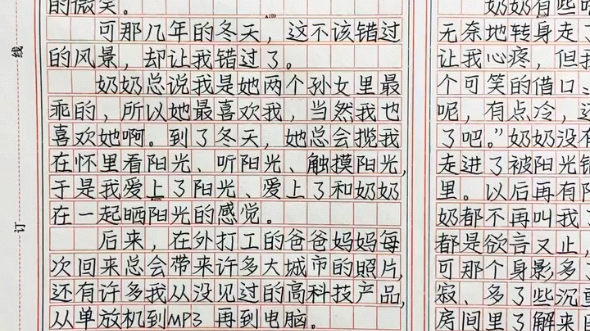 的微笑。
可那几年的冬天，这不该错过
的风景，却让我错过了。
奶奶总说我是她两个孙女里最
乖的，所以她最喜欢我，当然我也
喜欢她啊。到了冬天，她总会揽我
在怀里看阳光、听阳光、触摸阳光，
于是我爱上了阳光、爱上了和奶奶
在一起晒阳光的感觉。
后来，在外打工的爸爸妈妈每
次回来总会带来许多大城市的照片，
还有许多我从没见过的高科技产品，
从单放机到MP3 再到电脑。
奶奶有些
无奈地转身走
让我心疼，但我
个可笑的借口
呢，有点冷，还
了吧。”奶奶没有
走进了被阳光
里。以后再有阳
奶都不再叫我了
都是欲言又止，
可那个身影多了
寂、多了些沉
房间里了解来自
线
订